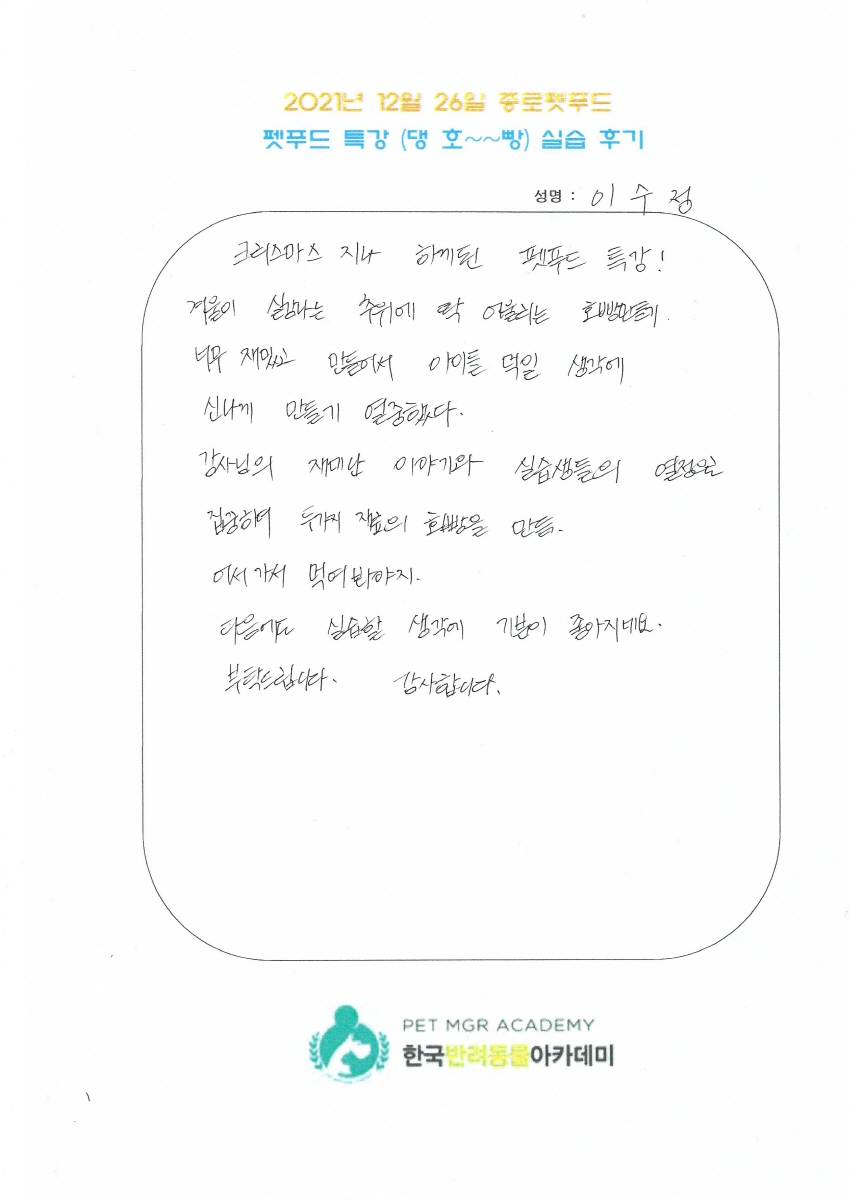 2021년 12월 26일 종로펫푸드
펫푸드 특강 (댕 호~~빵) 실습 후기
성명 : 이수정
크리스마스 지나 하게된 펫푸드 특강!
겨울이 실감나는 추위에 딱 어울리는 호빵만들기.
너무 재밌고 만들어서 아이들 먹일 생각에
신나게 만들기 열중했다.
강사님의 재미난 이야기와 실습생들의 열정으로
집중하며 두가지 재료의 호빵을 만듬.
어서가서 먹여봐야지.
다음에도 실습할 생각에 기분이 좋아지네요.
부탁드립니다. 감사합니다.
PET MGR ACADEMY
한국반려동물아카데미